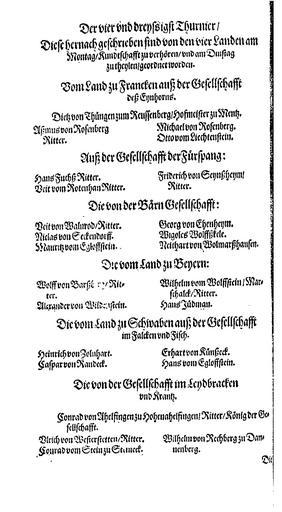 Der vier vnd dreyssigst Thurnier/
Diese hernach geschrieben sind von den vier Landen am
Montag/ Kundtschafft zu verhören/ vnd am Dinstag
zu theylen/ geordnet worden.
Vom Land zu Francken auß der Gesellschafft
deß Eynhorns.
Dietz von Thüngen zum Reussenberg/ Hofmeister zu Mentz.
Aßmus von Rosenberg Michael von Rosenberg.
Ritter. Otto vom Liechtenstein.
Auß der Gesellschafft der Fürspang:
Hans Fuchß Ritter. Friderich von Seynßheym/
Veit vom Rotenhan Ritter. Ritter.
Die von der Bärn Gesellschafft:
Veit von Walnrod/ Ritter. Georg von Ehenheym.
Niclas von Seckendorff. Wigoles Wolffßkele.
Mauritz vom Egloffstein. Neithart von Wolmarßhausen.
Die vom Land zu Beyern:
Wolff von Rit- Wilhelm vom Wolffstein/ Mar-
ter. schalck/ Ritter.
Alexander von Hans Jüdman.
Die vom Land zu Schwaben auß der Gesellschafft
im Falcken vnd Fisch.
Heinrich von Zolnhart. Erhart von Künßeck.
Caspar von Randeck. Hans vom Egloffstein.
Die von der Gesellschafft im Leydbracken
vnd Krantz.
Conrad von Ahelfingen zu Hohenahelfingen/ Ritter/ König der Ge-
sellschafft.
Vlrich von Westerstetten/ Ritter. Wilhelm von Rechberg zu Dan-
Conrad vom Stein zu nenberg.
Die